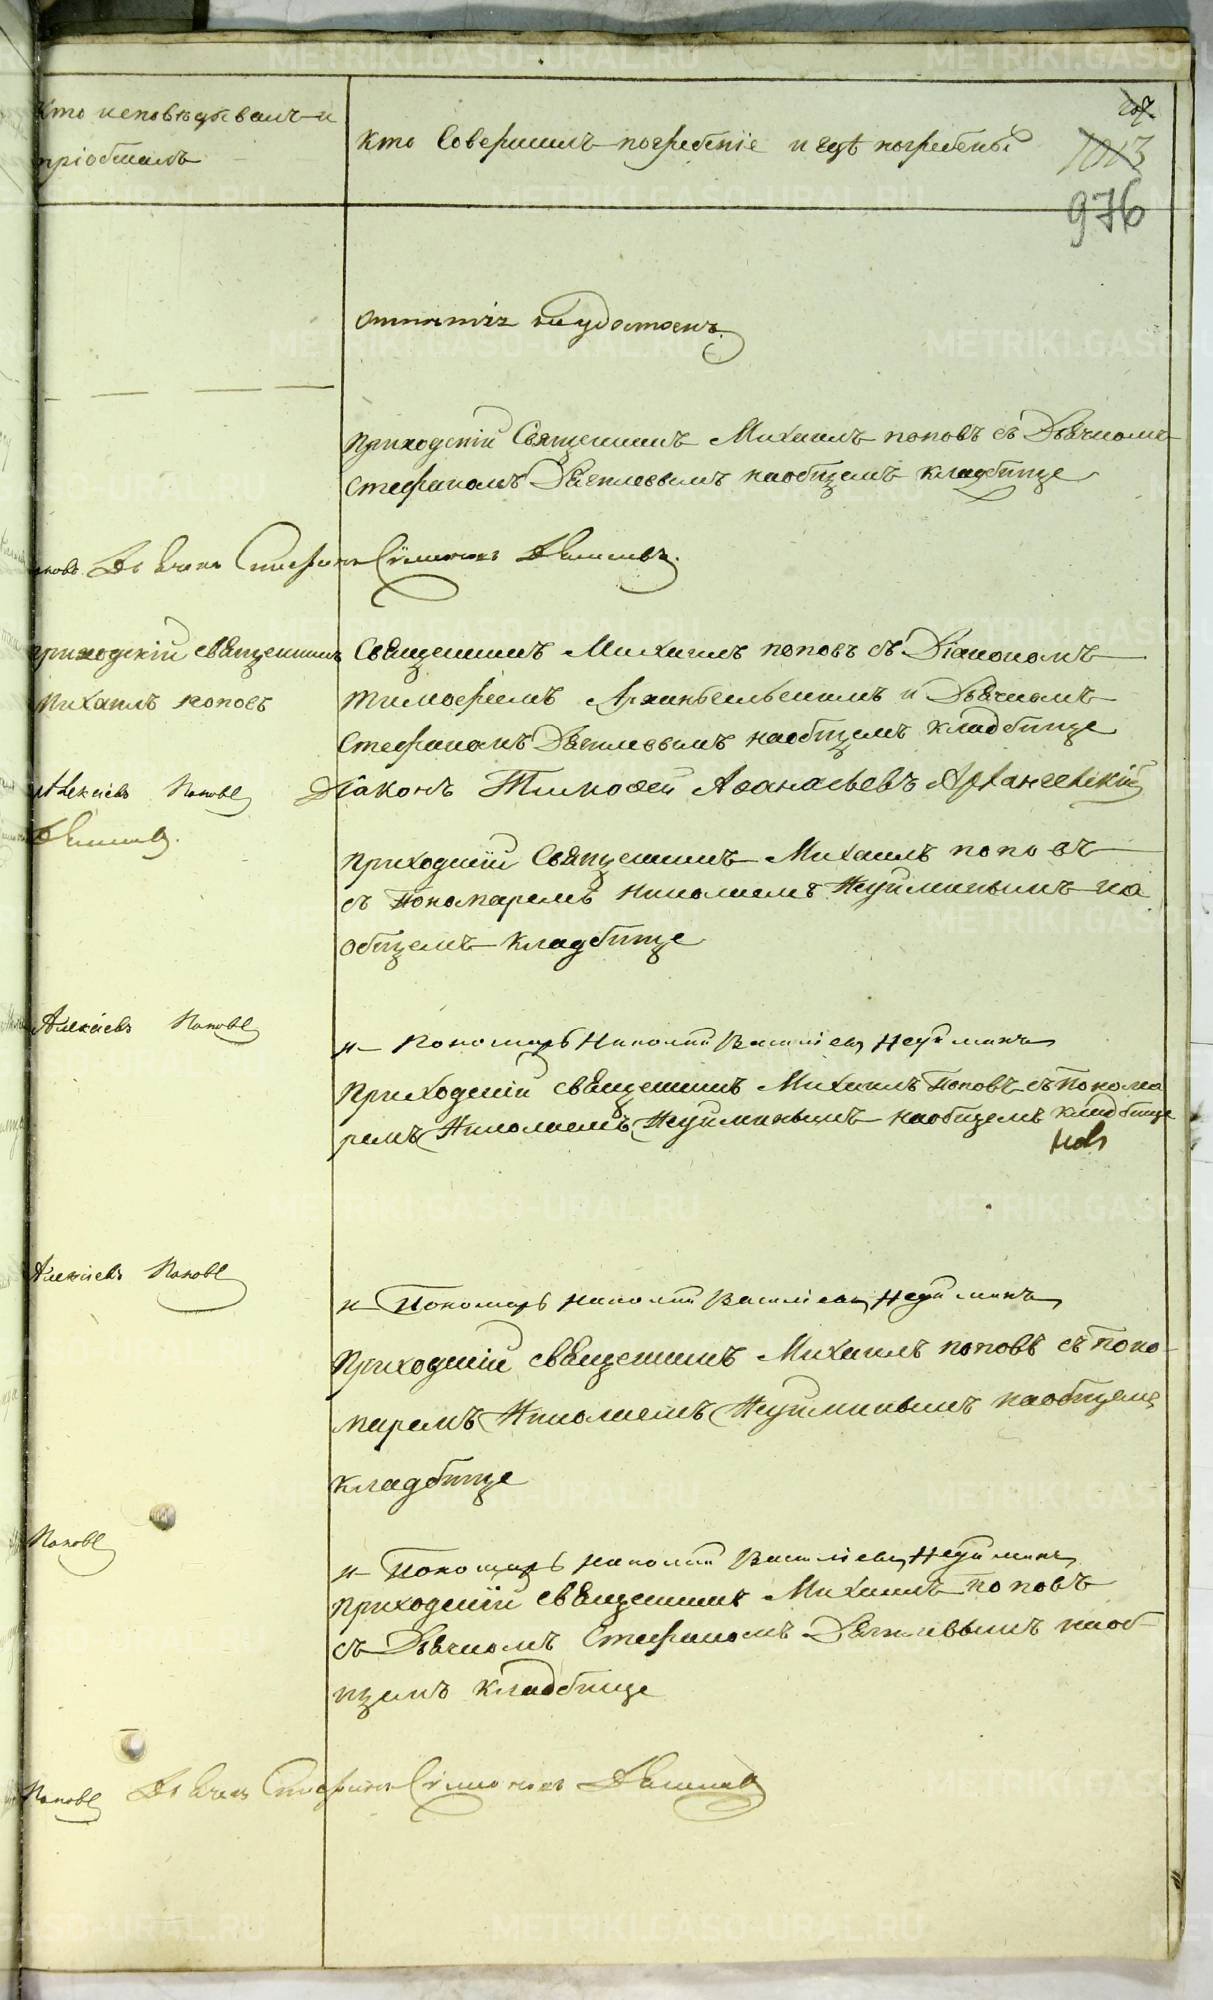 Кто исповѣдывалъ и
пріобщалъ
Кто Совершилъ погребеніе и гдѣ погребены
1013
976
Приходскій Священникъ Михаилъ поповъ съ Дьячкомъ
Стефаномъ наобщемъ кладбище
Дьячекъ Стефанъ Симоновъ
приходскій священникъ
Михаилъ поповъ
Священникъ Михаилъ поповъ съ Діакономъ
тимофеемъ Архангельскимъ и Дьячкомъ
Стефаномъ наобщемъ кладбище
Алексѣевъ Поповъ
Діаконъ Тимоѳей Аѳанасьевъ Архангельскій
приходскій Священникъ Михаилъ поповъ
съ Пономаремъ Николаемъ Неуйминымъ на
общемъ кладбище
Алексѣевъ Поповъ
и Пономарь Николай Василіевъ Неуйминъ
Приходскій священникъ Михаилъ Поповъ съ Понома
ремъ Николаемъ Неуйминымъ наобщемъ кладбище
Алексѣевъ Поповъ
и Пономарь Николай Василіевъ Неуйминъ
Приходскій священникъ Михаилъ поповъ съ Поно-
маремъ Николаемъ Неуйминымъ наобщемъ
кладбище
Поповъ
и Пономарь Николай Василіевъ Неуйминъ
приходскій священникъ Михаилъ поповъ
съ Дьячкомъ Стефаномъ наоб-
щемъ кладбище
Поповъ Дьячекъ Стефанъ Симоновъ
METRIKI.GASO-URAL.RU